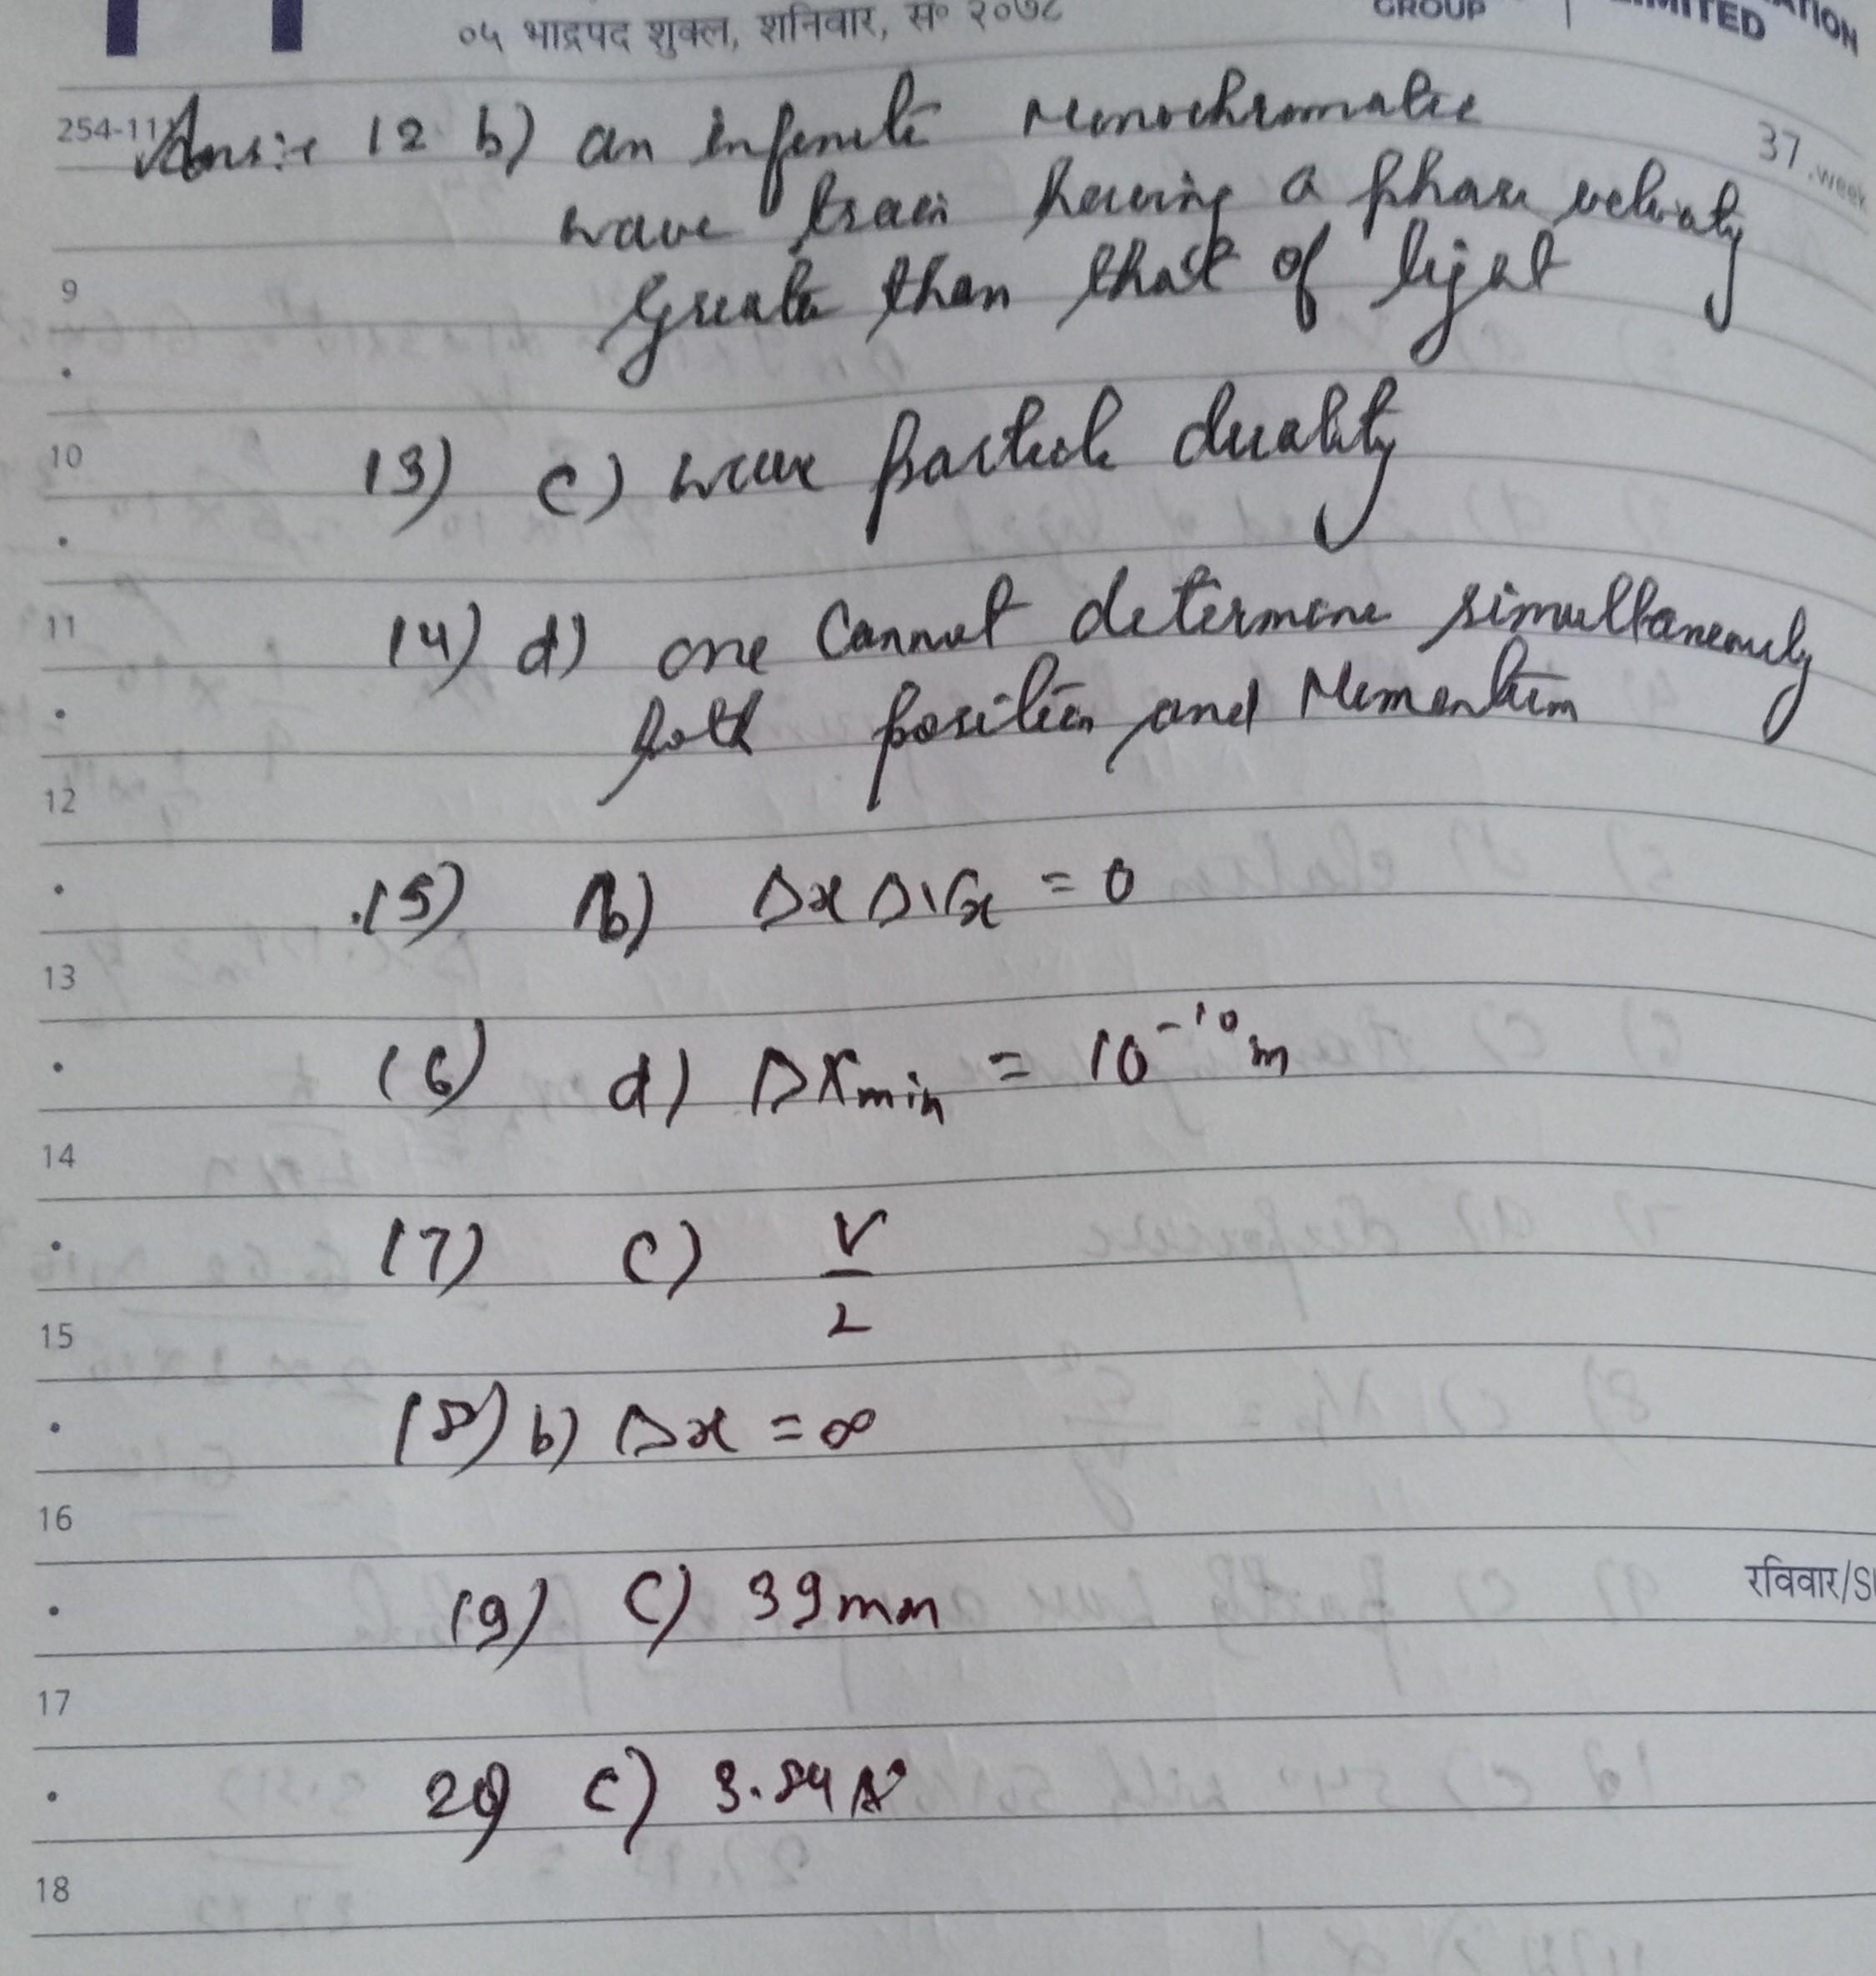 ०५ भाद्रपद शुक्ल, शनिवार, स० २०७८
GROUP
37 .week
254-11
Ans:- 12 b) an infinite monochromatic
wave train having a phase velocity
9
greater than that of light
10
13) c) wave particle duality
11
14) d) one cannot determine simultaneously
both position and Momentum
12
15) b) Δx Δvx = 0
13
16) d) ΔXmin = 10⁻¹⁰m
14
17) c) v/2
15
18) b) Δx = ∞
16
रविवार/S
19) C) 39mm
17
20) c) 3.84 A°
18